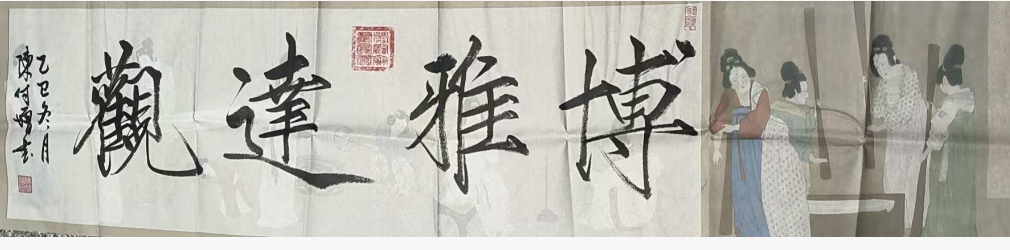 博雅達觀
乙巳冬月
陳付